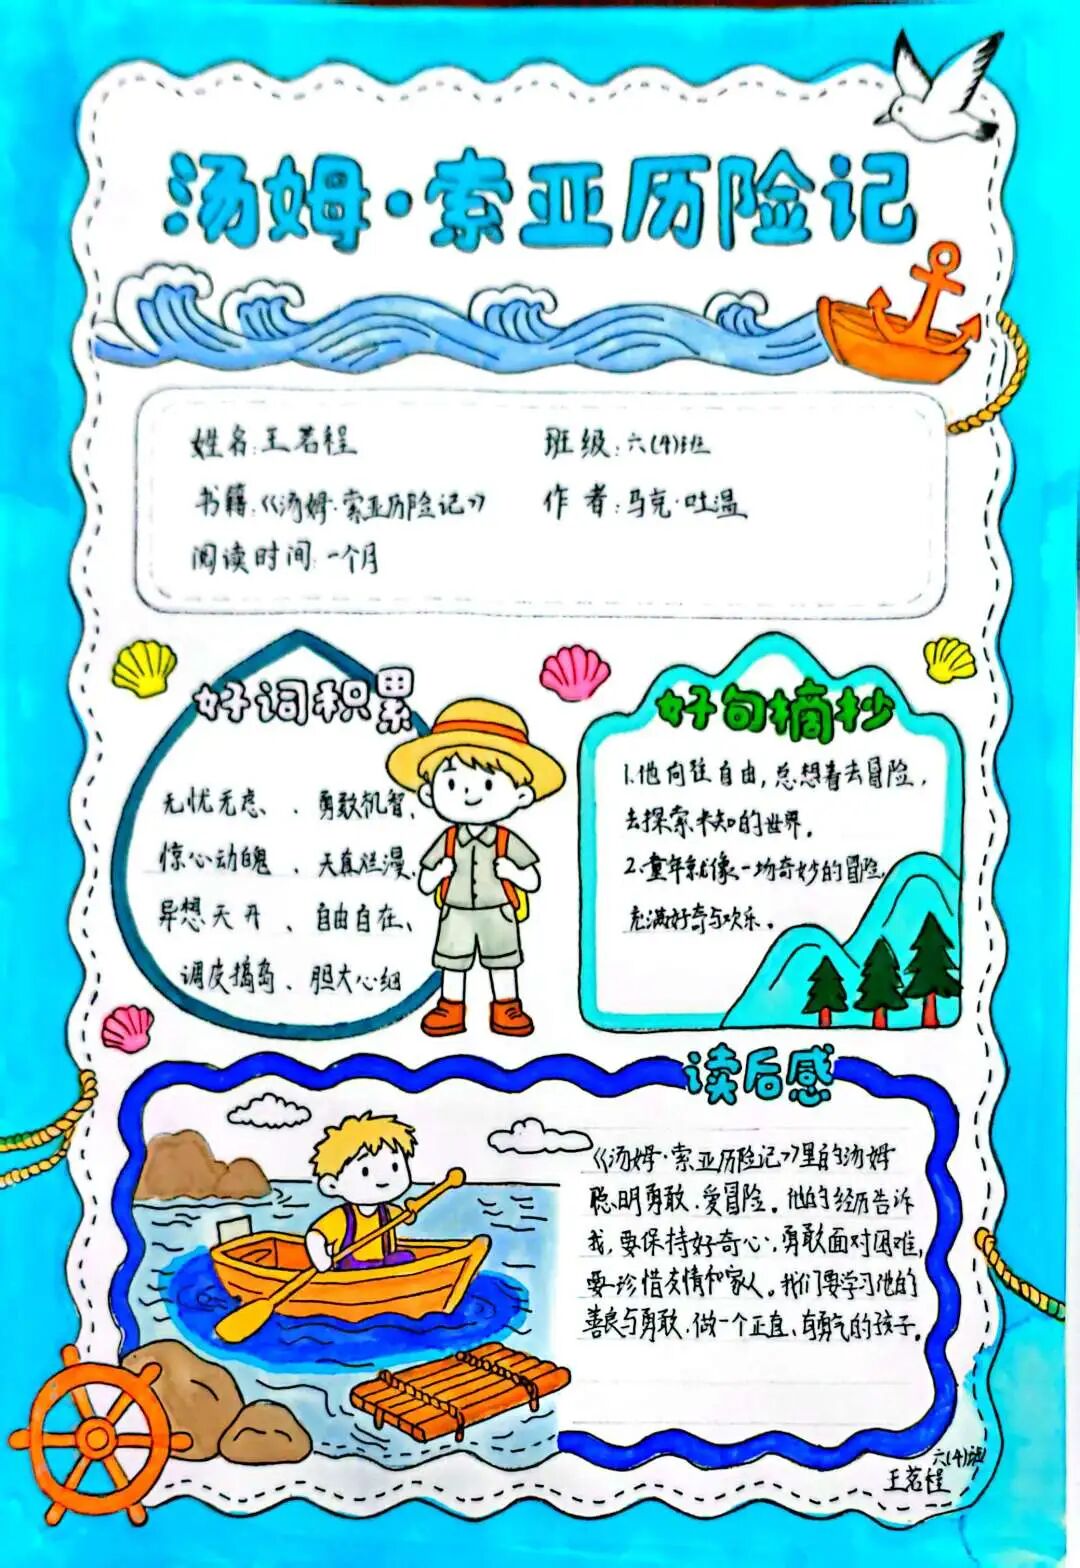 汤姆·索亚历险记
姓名:王茗程
班级:六(4)班
书籍:《汤姆·索亚历险记》
作者:马克·吐温
阅读时间:一个月
好词积累
无忧无虑、勇敢机智、
惊心动魄、天真烂漫、
异想天开、自由自在、
调皮捣蛋、胆大心细
好句摘抄
1.他向往自由,总想着去冒险,
去探索未知的世界。
2.童年就像一场奇妙的冒险,
充满好奇与欢乐。
读后感
《汤姆·索亚历险记》里的汤姆
聪明勇敢、爱冒险。他的经历告诉
我,要保持好奇心,勇敢面对困难,
要珍惜友情和家人。我们要学习他的
善良与勇敢,做一个正直、有勇气的孩子。
六(4)班
王茗程